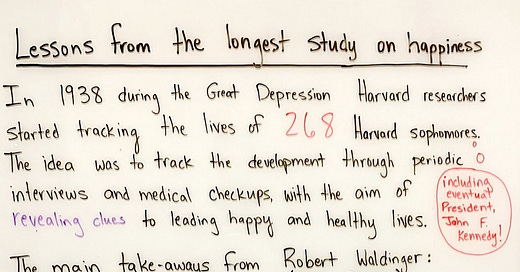 Lessons from the longest study on happiness
In 1938 during the Great Depression Harvard researchers
started tracking the lives of 268 Harvard sophomores.
The idea was to track the development through periodic
interviews and medical checkups, with the aim of
revealing clues to leading happy and healthy lives.
including
eventual
President,
John F.
Kennedy!
The main take-aways from Robert Waldinger: